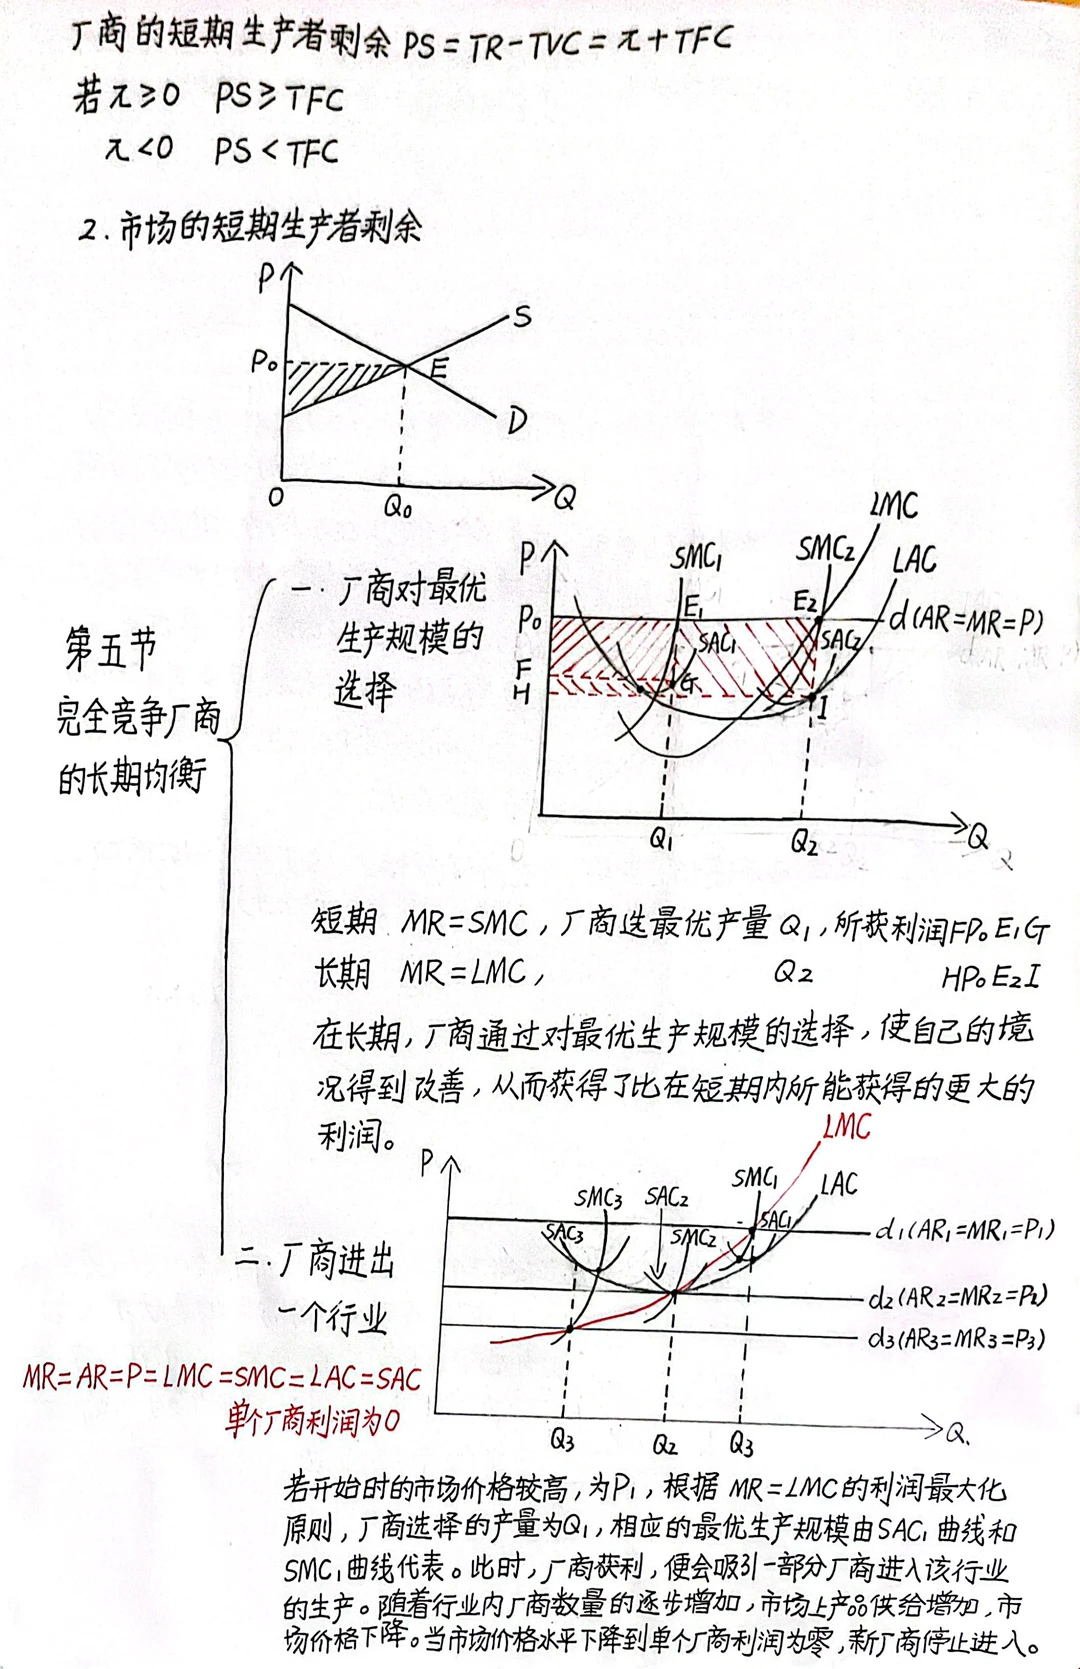 厂商的短期生产者剩余 PS=TR-TVC=π+TFC
若π≥0 PS≥TFC
π<0 PS<TFC
2.市场的短期生产者剩余
P
S
P₀
E
D
O
Q₀
Q
第五节
完全竞争厂商
的长期均衡
一.厂商对最优
生产规模的
选择
LMC
P
SMC₁
SMC₂
LAC
P₀
E₁
E₂
d(AR=MR=P)
SAC₁
SAC₂
F
G
H
I
Q₁
Q₂
Q
短期 MR=SMC,厂商选最优产量Q₁,所获利润FP₀E₁G
长期 MR=LMC, Q₂ HP₀E₂I
在长期,厂商通过对最优生产规模的选择,使自己的境
况得到改善,从而获得了比在短期内所能获得的更大的
利润。
LMC
P
SMC₃
SAC₂
SMC₁
LAC
SAC₃
SMC₂
SAC₁
d₁(AR₁=MR₁=P₁)
二.厂商进出
一个行业
d₂(AR₂=MR₂=P₂)
d₃(AR₃=MR₃=P₃)
MR=AR=P=LMC=SMC=LAC=SAC
单个厂商利润为0
Q₃
Q₂
Q₃
Q.
若开始时的市场价格较高,为P₁,根据MR=LMC的利润最大化
原则,厂商选择的产量为Q₁,相应的最优生产规模由SAC₁曲线和
SMC₁曲线代表。此时,厂商获利,便会吸引一部分厂商进入该行业
的生产。随着行业内厂商数量的逐步增加,市场上产品供给增加,市
场价格下降。当市场价格水平下降到单个厂商利润为零,新厂商停止进入。